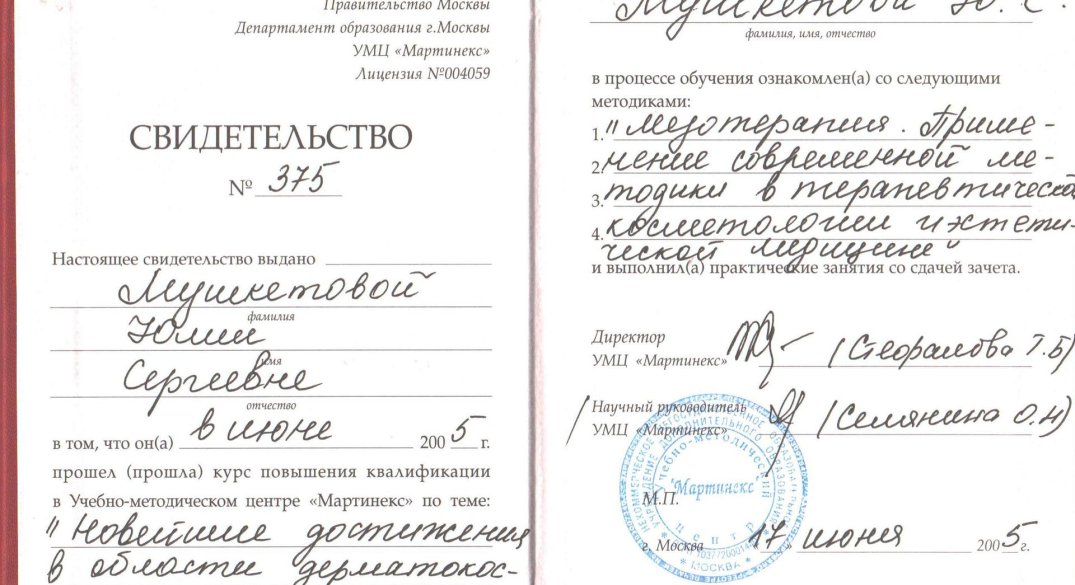 Правительство Москвы
Департамент образования г.Москвы
УМЦ «Мартинекс»
Лицензия №004059
СВИДЕТЕЛЬСТВО
№ 375
Настоящее свидетельство выдано
Мушкетовой
фамилия
Юлии
имя
Сергеевне
отчество
в том, что он(а) в июне 2005 г.
прошел (прошла) курс повышения квалификации
в Учебно-методическом центре «Мартинекс» по теме:
"Новейшие достижения
в области дерматокос-
Мушкетова Ю. С.
фамилия, имя, отчество
в процессе обучения ознакомлен(а) со следующими
методиками:
1. "Мезотерапия. Приме-
2. нение современной ме-
3. тодики в терапевтической
4. косметологии и эстети-
ческой медицине"
и выполнил(а) практические занятия со сдачей зачета.
Директор
УМЦ «Мартинекс» (Сафралова Т.Б)
Научный руководитель
УМЦ «Мартинекс» (Селянина О.Н)
Учебно-методический
"Мартинекс"
центр
* МОСКВА *
М.П.
г. Москва 17 июня 2005г.